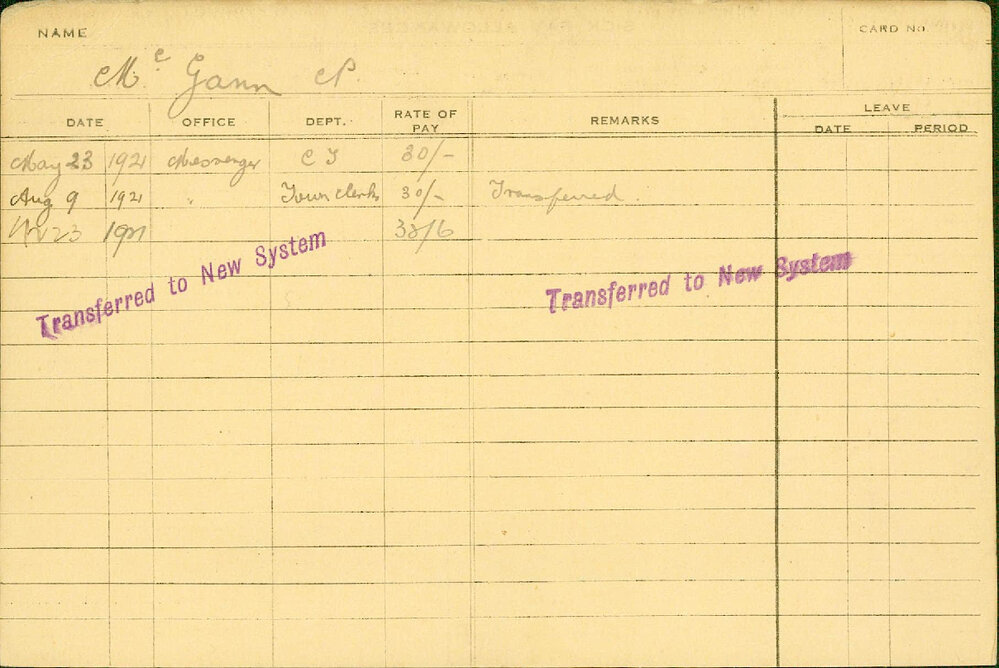 NAME CARD No
Mc Gann P.
DATE OFFICE DEPT. RATE OF PAY REMARKS LEAVE
DATE PERIOD
May 23 1921 Messenger C T 30/-
Aug 9 1921 " Town Clerks 30/- Transferred.
23 1921 38/6
Transferred to New System
Transferred to New System